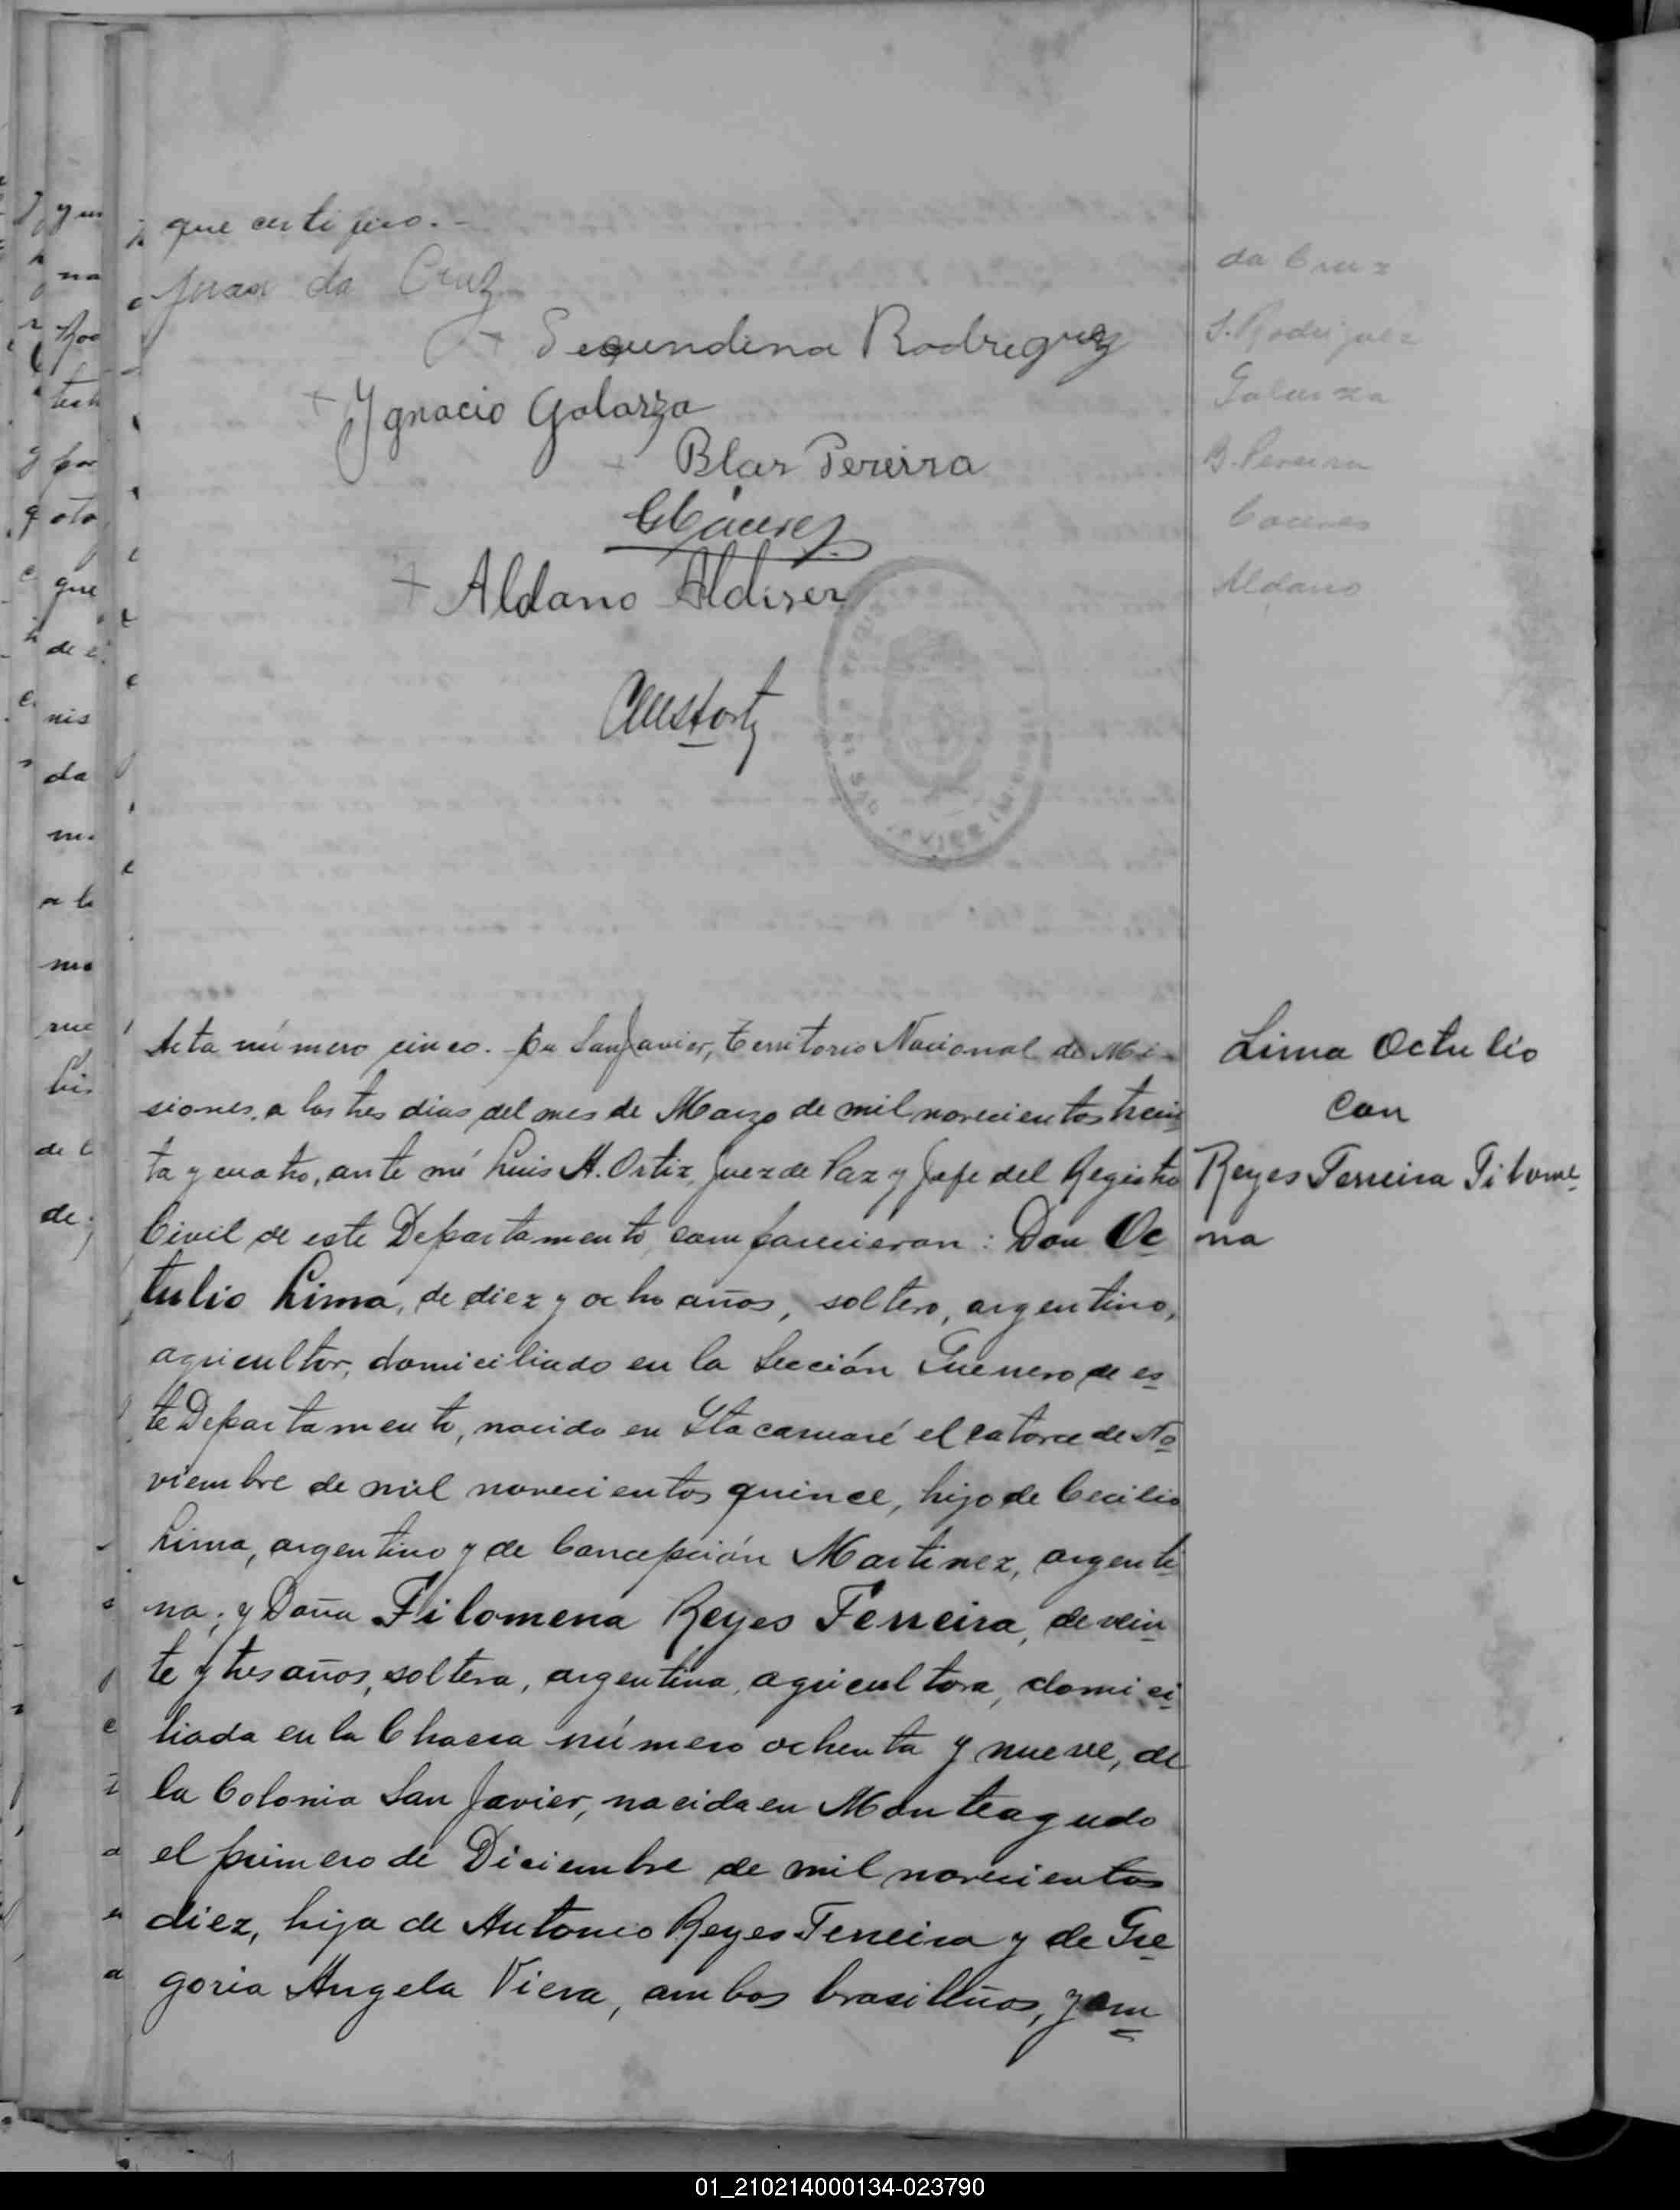 que certifico.-
Juan da Cruz
da Cruz
+ Segundina Rodriguez
S. Rodriguez
+ Ygnacio Galarza
Galarza
+ Blas Pereira
B. Pereira
Caceres
+ Aldano Aldiser
Aldano
Acta número cinco. En San Javier, Territorio Nacional de Mi-
siones, a los tres dias del mes de Marzo de mil novecientos trein
ta y cuatro, ante mí Luis A. Ortiz, Juez de Paz y Jefe del Registro
Civil de este Departamento, comparecieron: Don Oc
tulio Lima, de diez y ocho años, soltero, argentino,
agricultor, domiciliado en la Sección Guerrero de es
te Departamento, nacido en Itacaruaré el catorce de No
viembre de mil novecientos quince, hijo de Cecilio
Lima, argentino y de Concepción Martinez, argenti
na; y Doña Filomena Reyes Ferreira, de vein
te y tres años, soltera, argentina, agricultora, domici
liada en la Chacra número ochenta y nueve, de
la Colonia San Javier, nacida en Monteagudo
el primero de Diciembre de mil novecientos
diez, hija de Antonio Reyes Ferreira y de Gre
goria Angela Viera, ambos brasileños, y am
Lima Octulio
con
Reyes Ferreira Filome
na
01_210214000134-023790